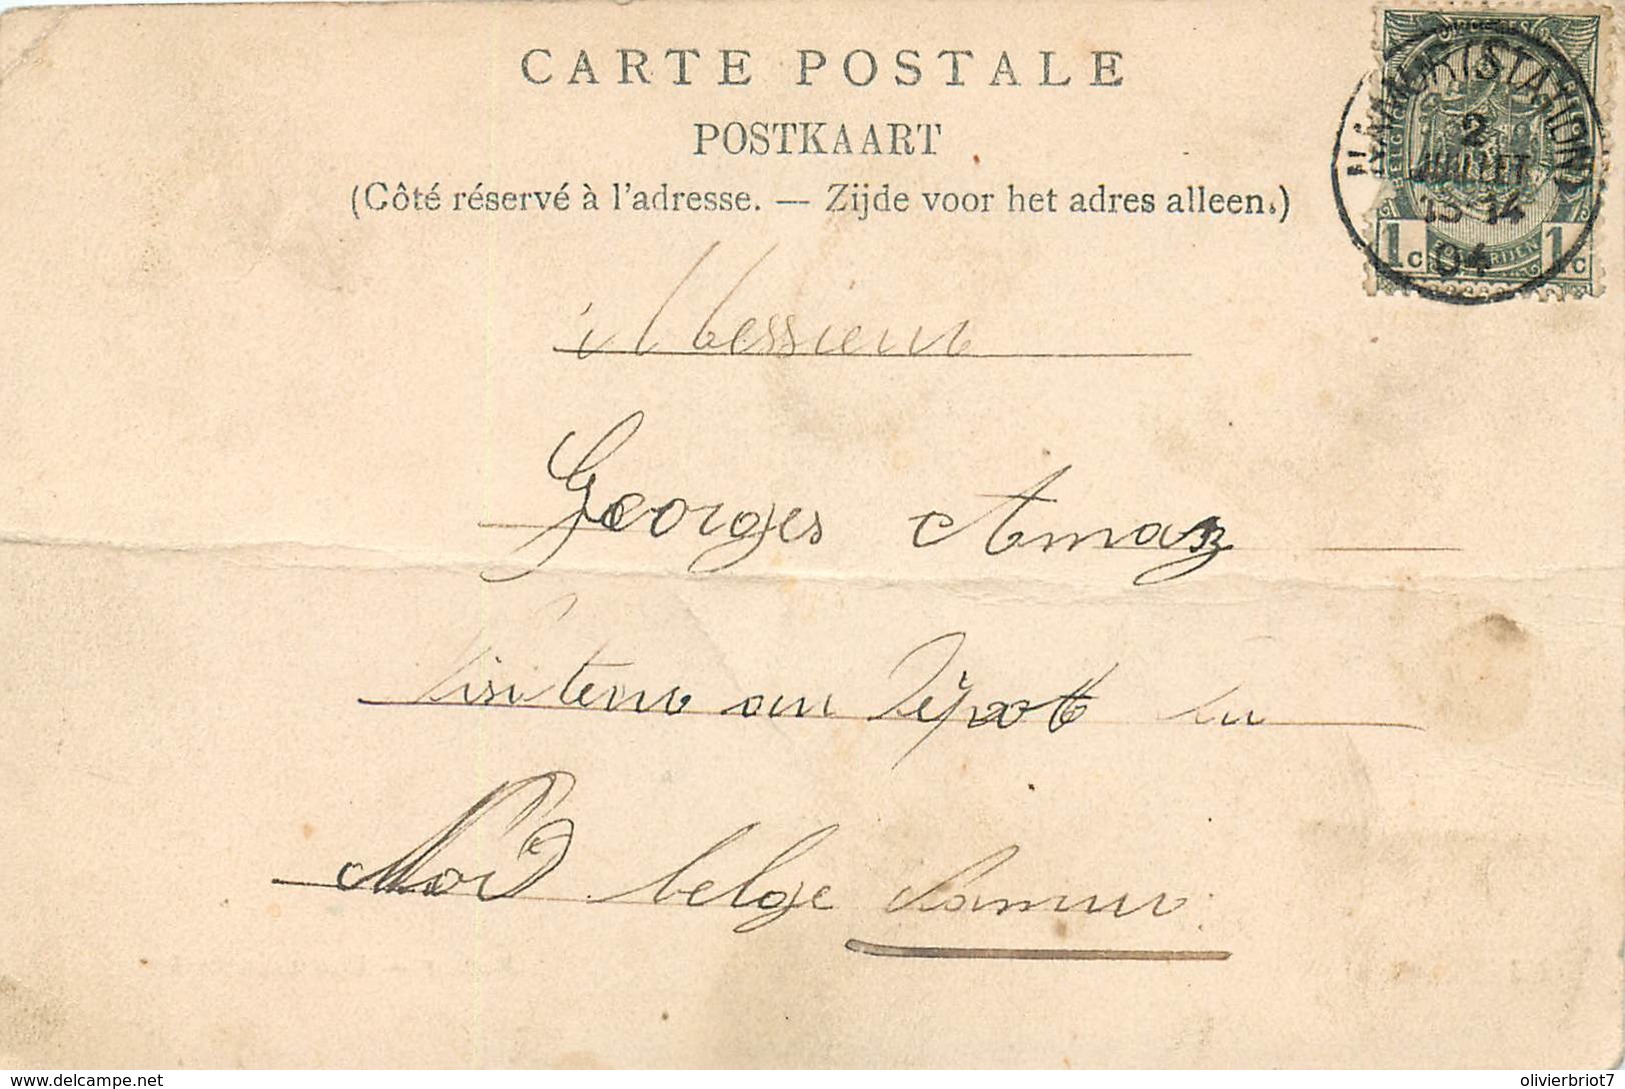 CARTE POSTALE
POSTKAART
(Côté réservé à l'adresse. — Zijde voor het adres alleen.)
NAMUR (STATION)
2
JUILLET
13-14
04
BELGI
1 c 1 c
Messieur
Georges Amaz
Visiteur au Dépot du
Nord belge Namur
delcampe.net
olivierbriot7